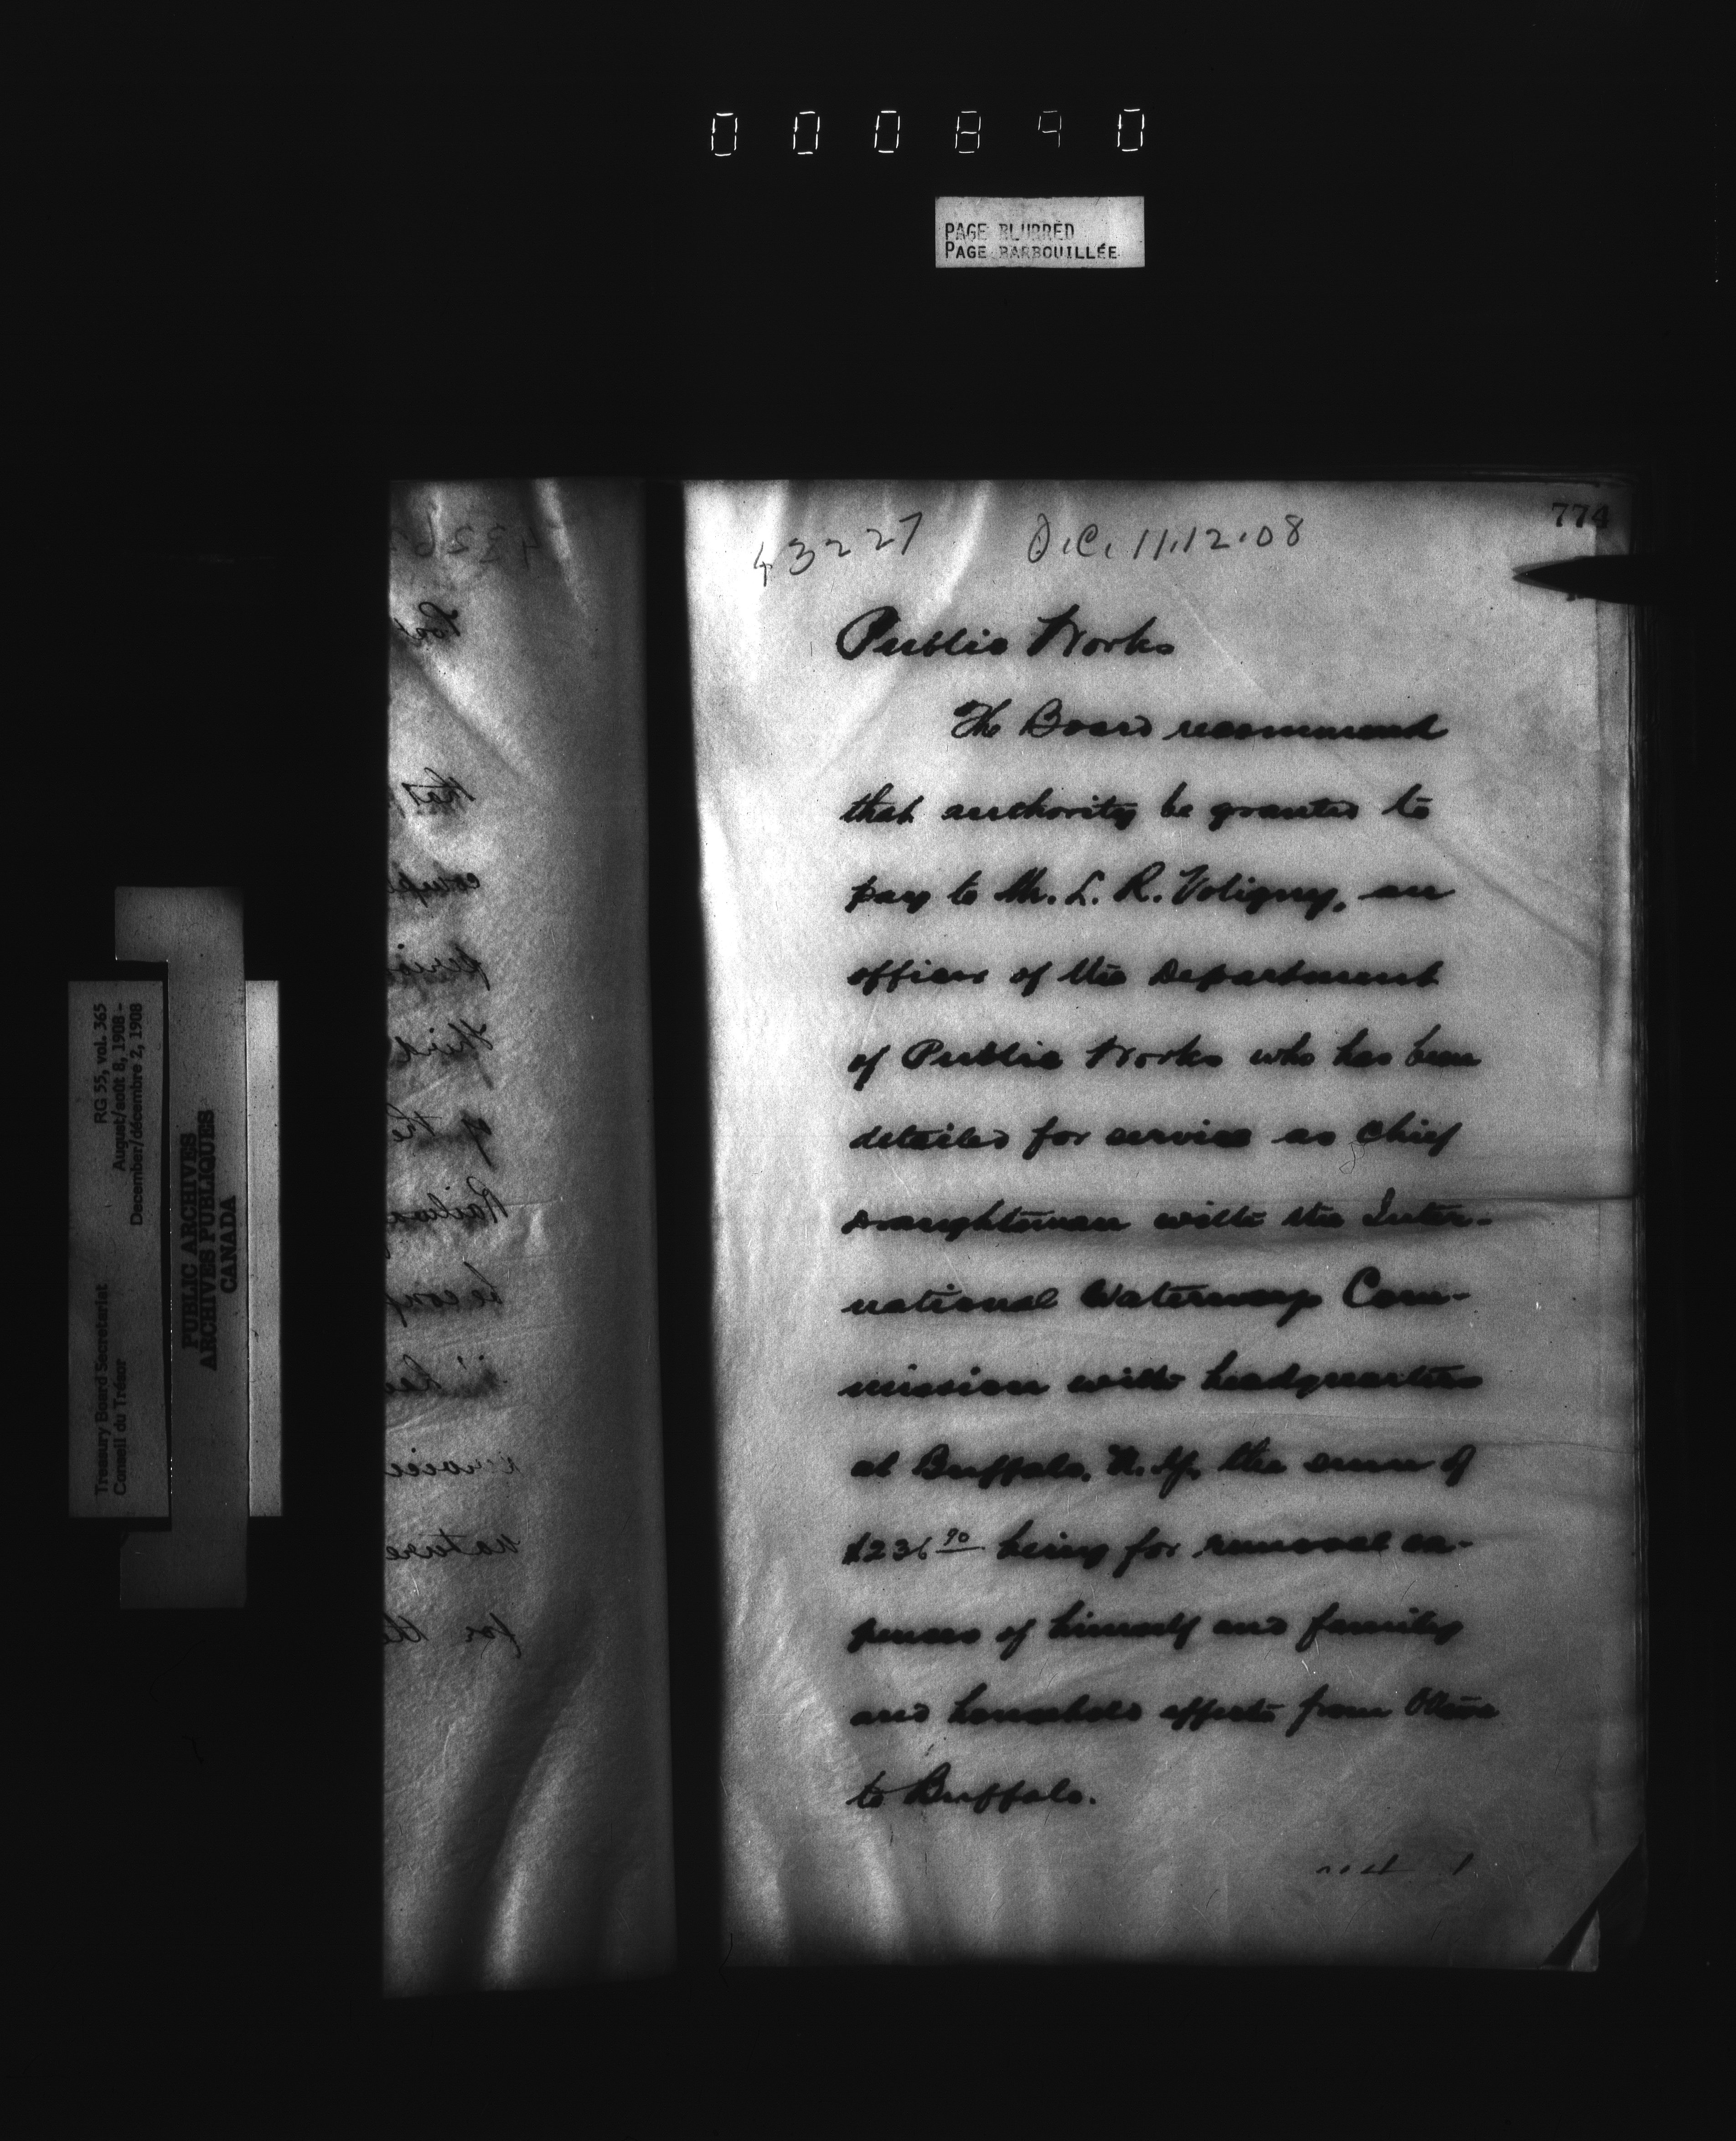 000890
PAGE BLURRED
PAGE BARBOUILLÉE
774
43227 O.C. 11.12.08
Public Works
The Board recommend
that authority be granted to
pay to Mr. L. R. Voligny, an
officer of the Department
of Public Works who has been
detailed for service as chief
draughtsman with the Inter-
national Waterway Com-
mission with headquarters
at Buffalo, N.Y. the sum of
$236 90 being for removal ex-
penses of himself and family
and household effects from Ottawa
to Buffalo.
Treasury Board Secretariat RG 55, vol. 365
Conseil du Trésor August/août 8, 1908 -
December/décembre 2, 1908
PUBLIC ARCHIVES
ARCHIVES PUBLIQUES
CANADA
that
of the
nature
for the